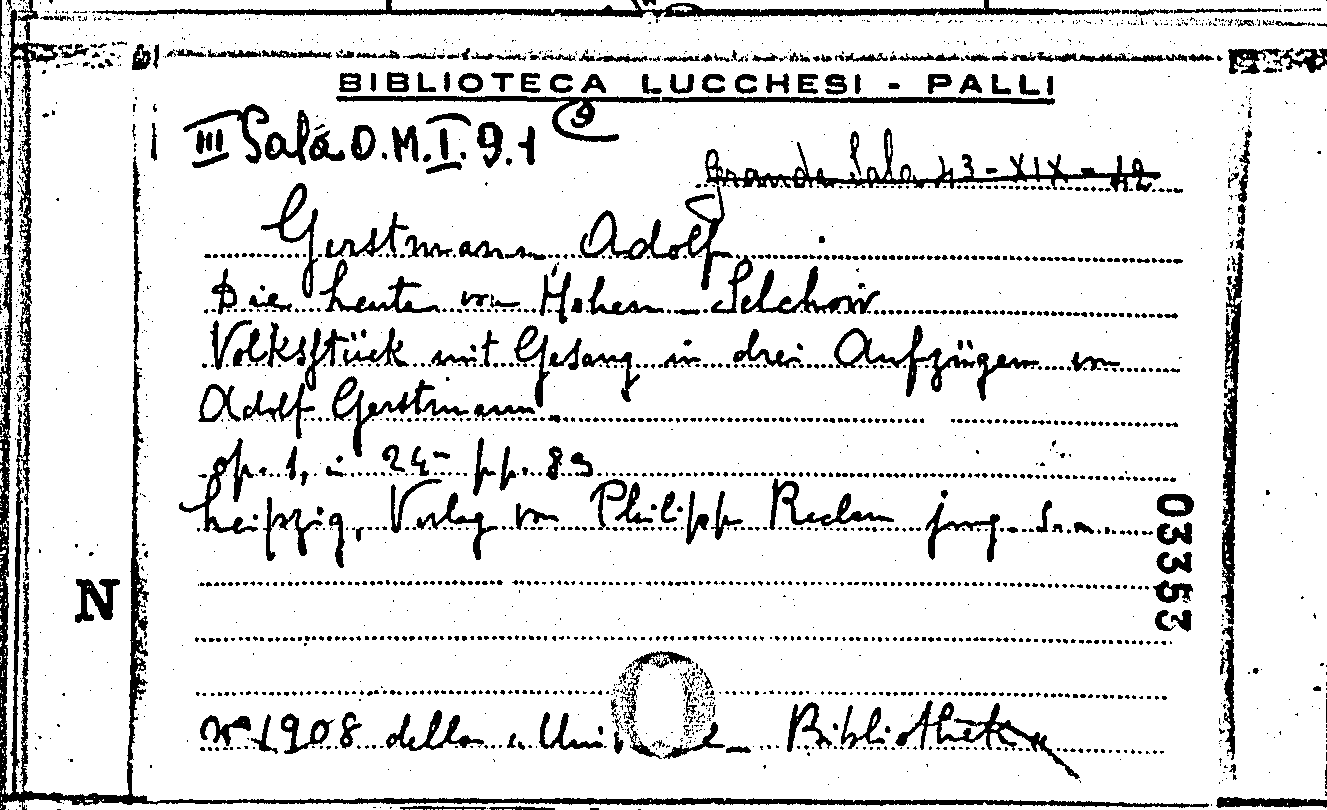 BIBLIOTECA LUCCHESI - PALLI
III Sala O.M.I.9.1 (9
Grande Sala 43-XIX-42
Gerstmann, Adolf
Die Leute von Hohen-Selchow
Volksstück mit Gesang in drei Aufzügen von
Adolf Gerstmann.
op. 1, in 24- pp. 83
Leipzig, Verlag von Philipp Reclam jung. s.a.
03353
N
Nº 1908 della "Uni Bibliothek"